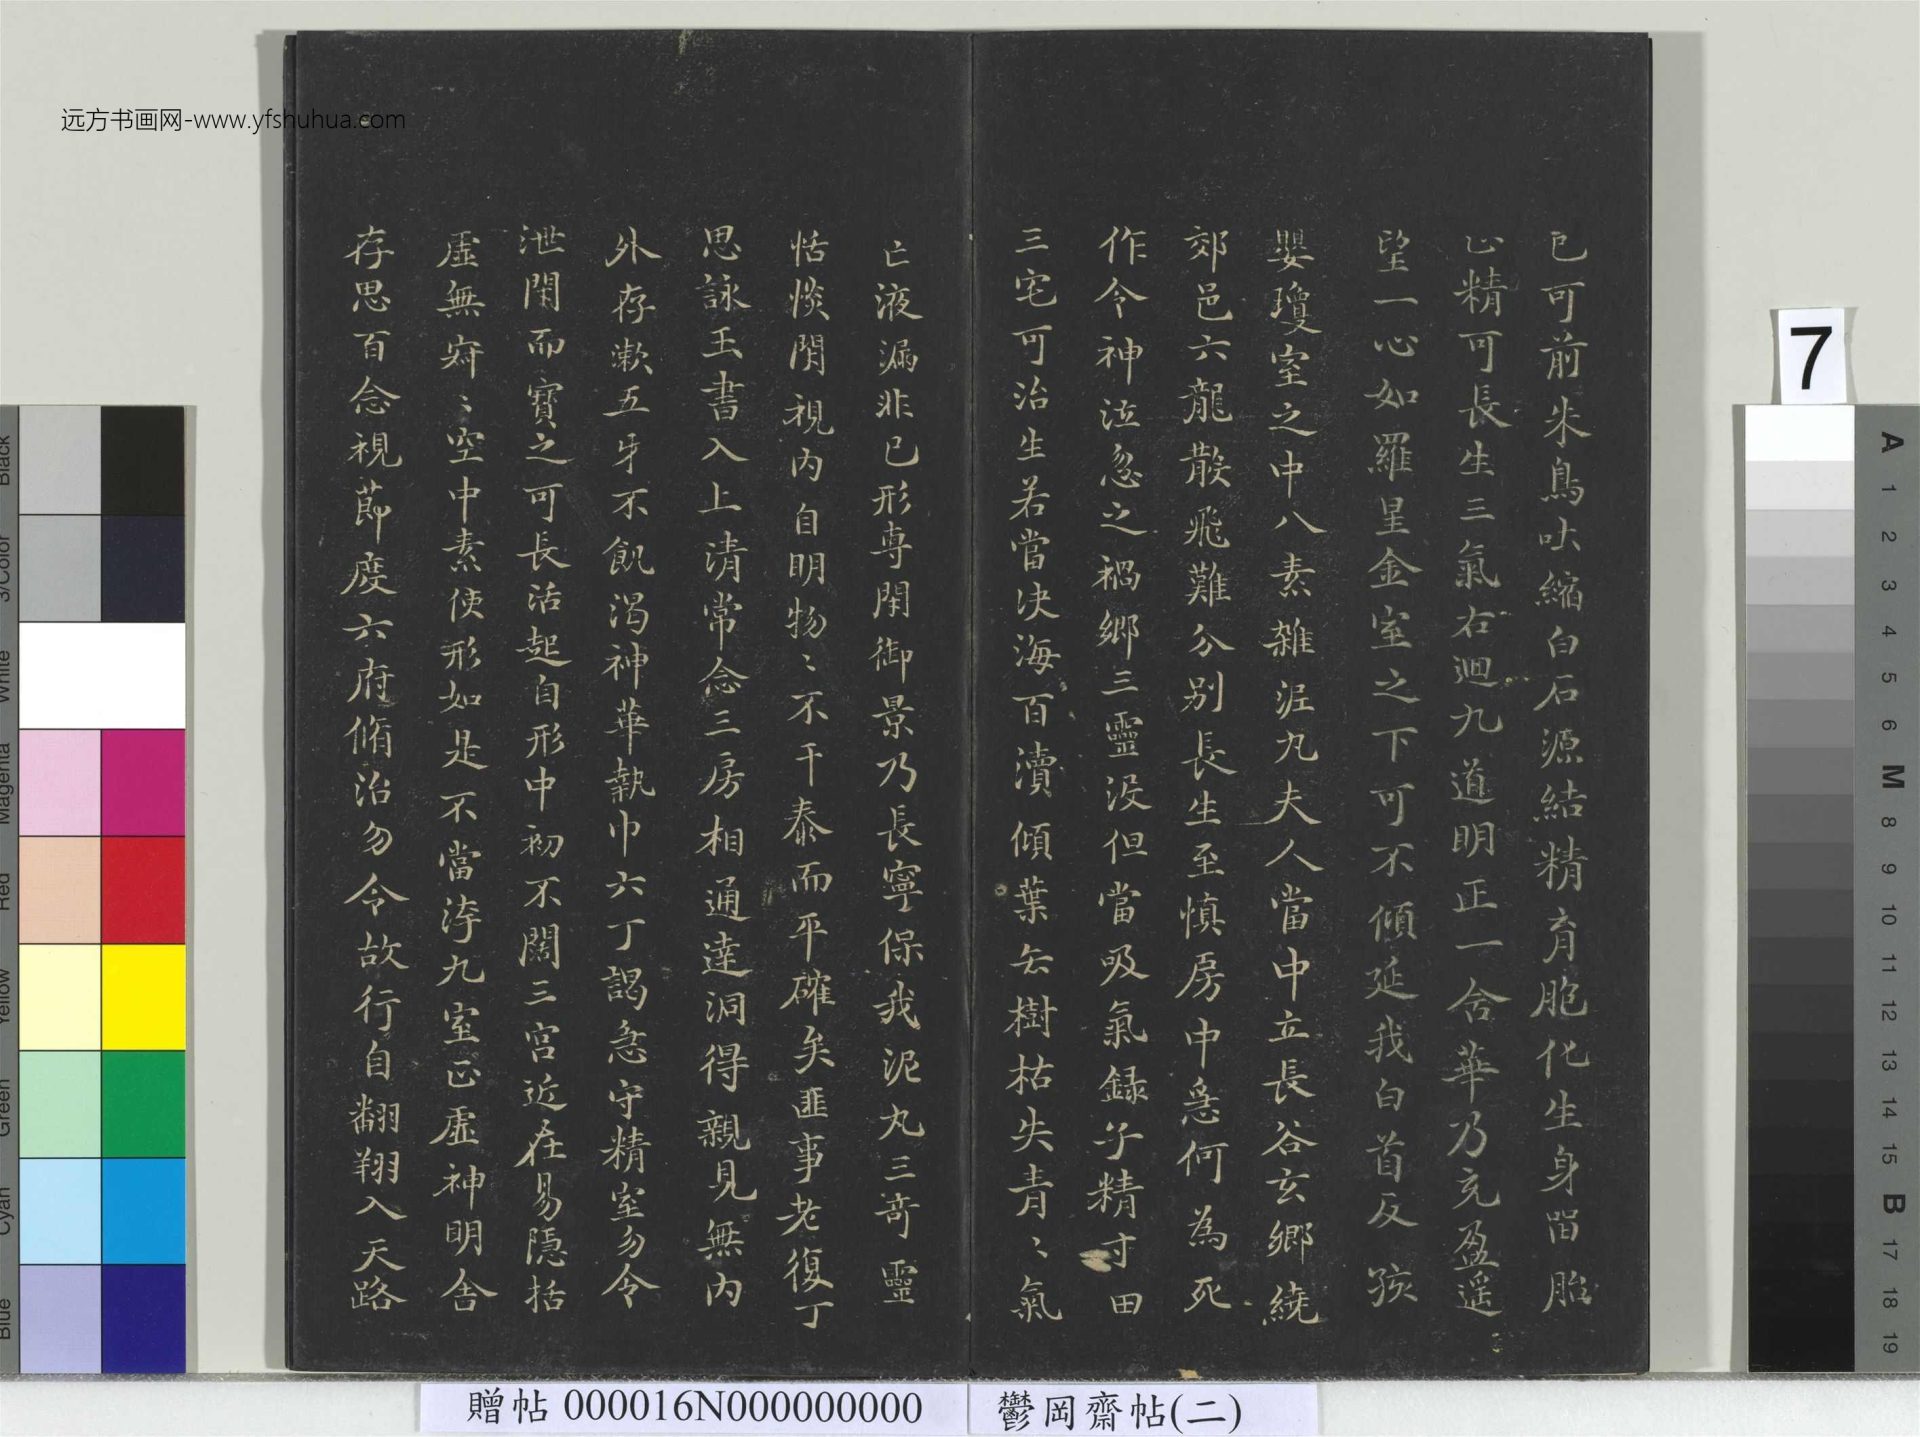 远方书画网-www.yfshuhua.com
已可前朱鳥吐縮白石源結精育胞化生身留胎
止精可長生三氣右迴九道明正一含華乃充盈遥
望一心如羅星金室之下可不傾延我白首反孩
嬰瓊室之中八素雜泥丸夫人當中立長谷玄鄉繞
郊邑六龍散飛難分别長生至慎房中急何為死
作令神泣忽之禍鄉三靈没但當吸氣録子精寸田
三宅可治生若當决海百瀆傾葉去樹枯失青〻氣
亡液漏非已形專閑御景乃長寧保我泥丸三奇靈
恬惔閑視内自明物〻不干泰而平確矣匪事老復丁
思詠玉書入上清常念三房相通達洞得親見無内
外存漱五牙不飢渴神華執巾六丁謁急守精室勿令
泄閑而寶之可長活起自形中初不闊三宫近在易隱括
虚無寂〻空中素使形如是不當汙九室正虚神明舍
存思百念視節度六府脩治勿令故行自翱翔入天路
贈帖 000016N000000000
鬱岡齋帖(二)
7
Black
3/Color
White
Magenta
Red
Yellow
Green
Cyan
Blue
A
1
2
3
4
5
6
M
8
9
10
11
12
13
14
15
B
17
18
19